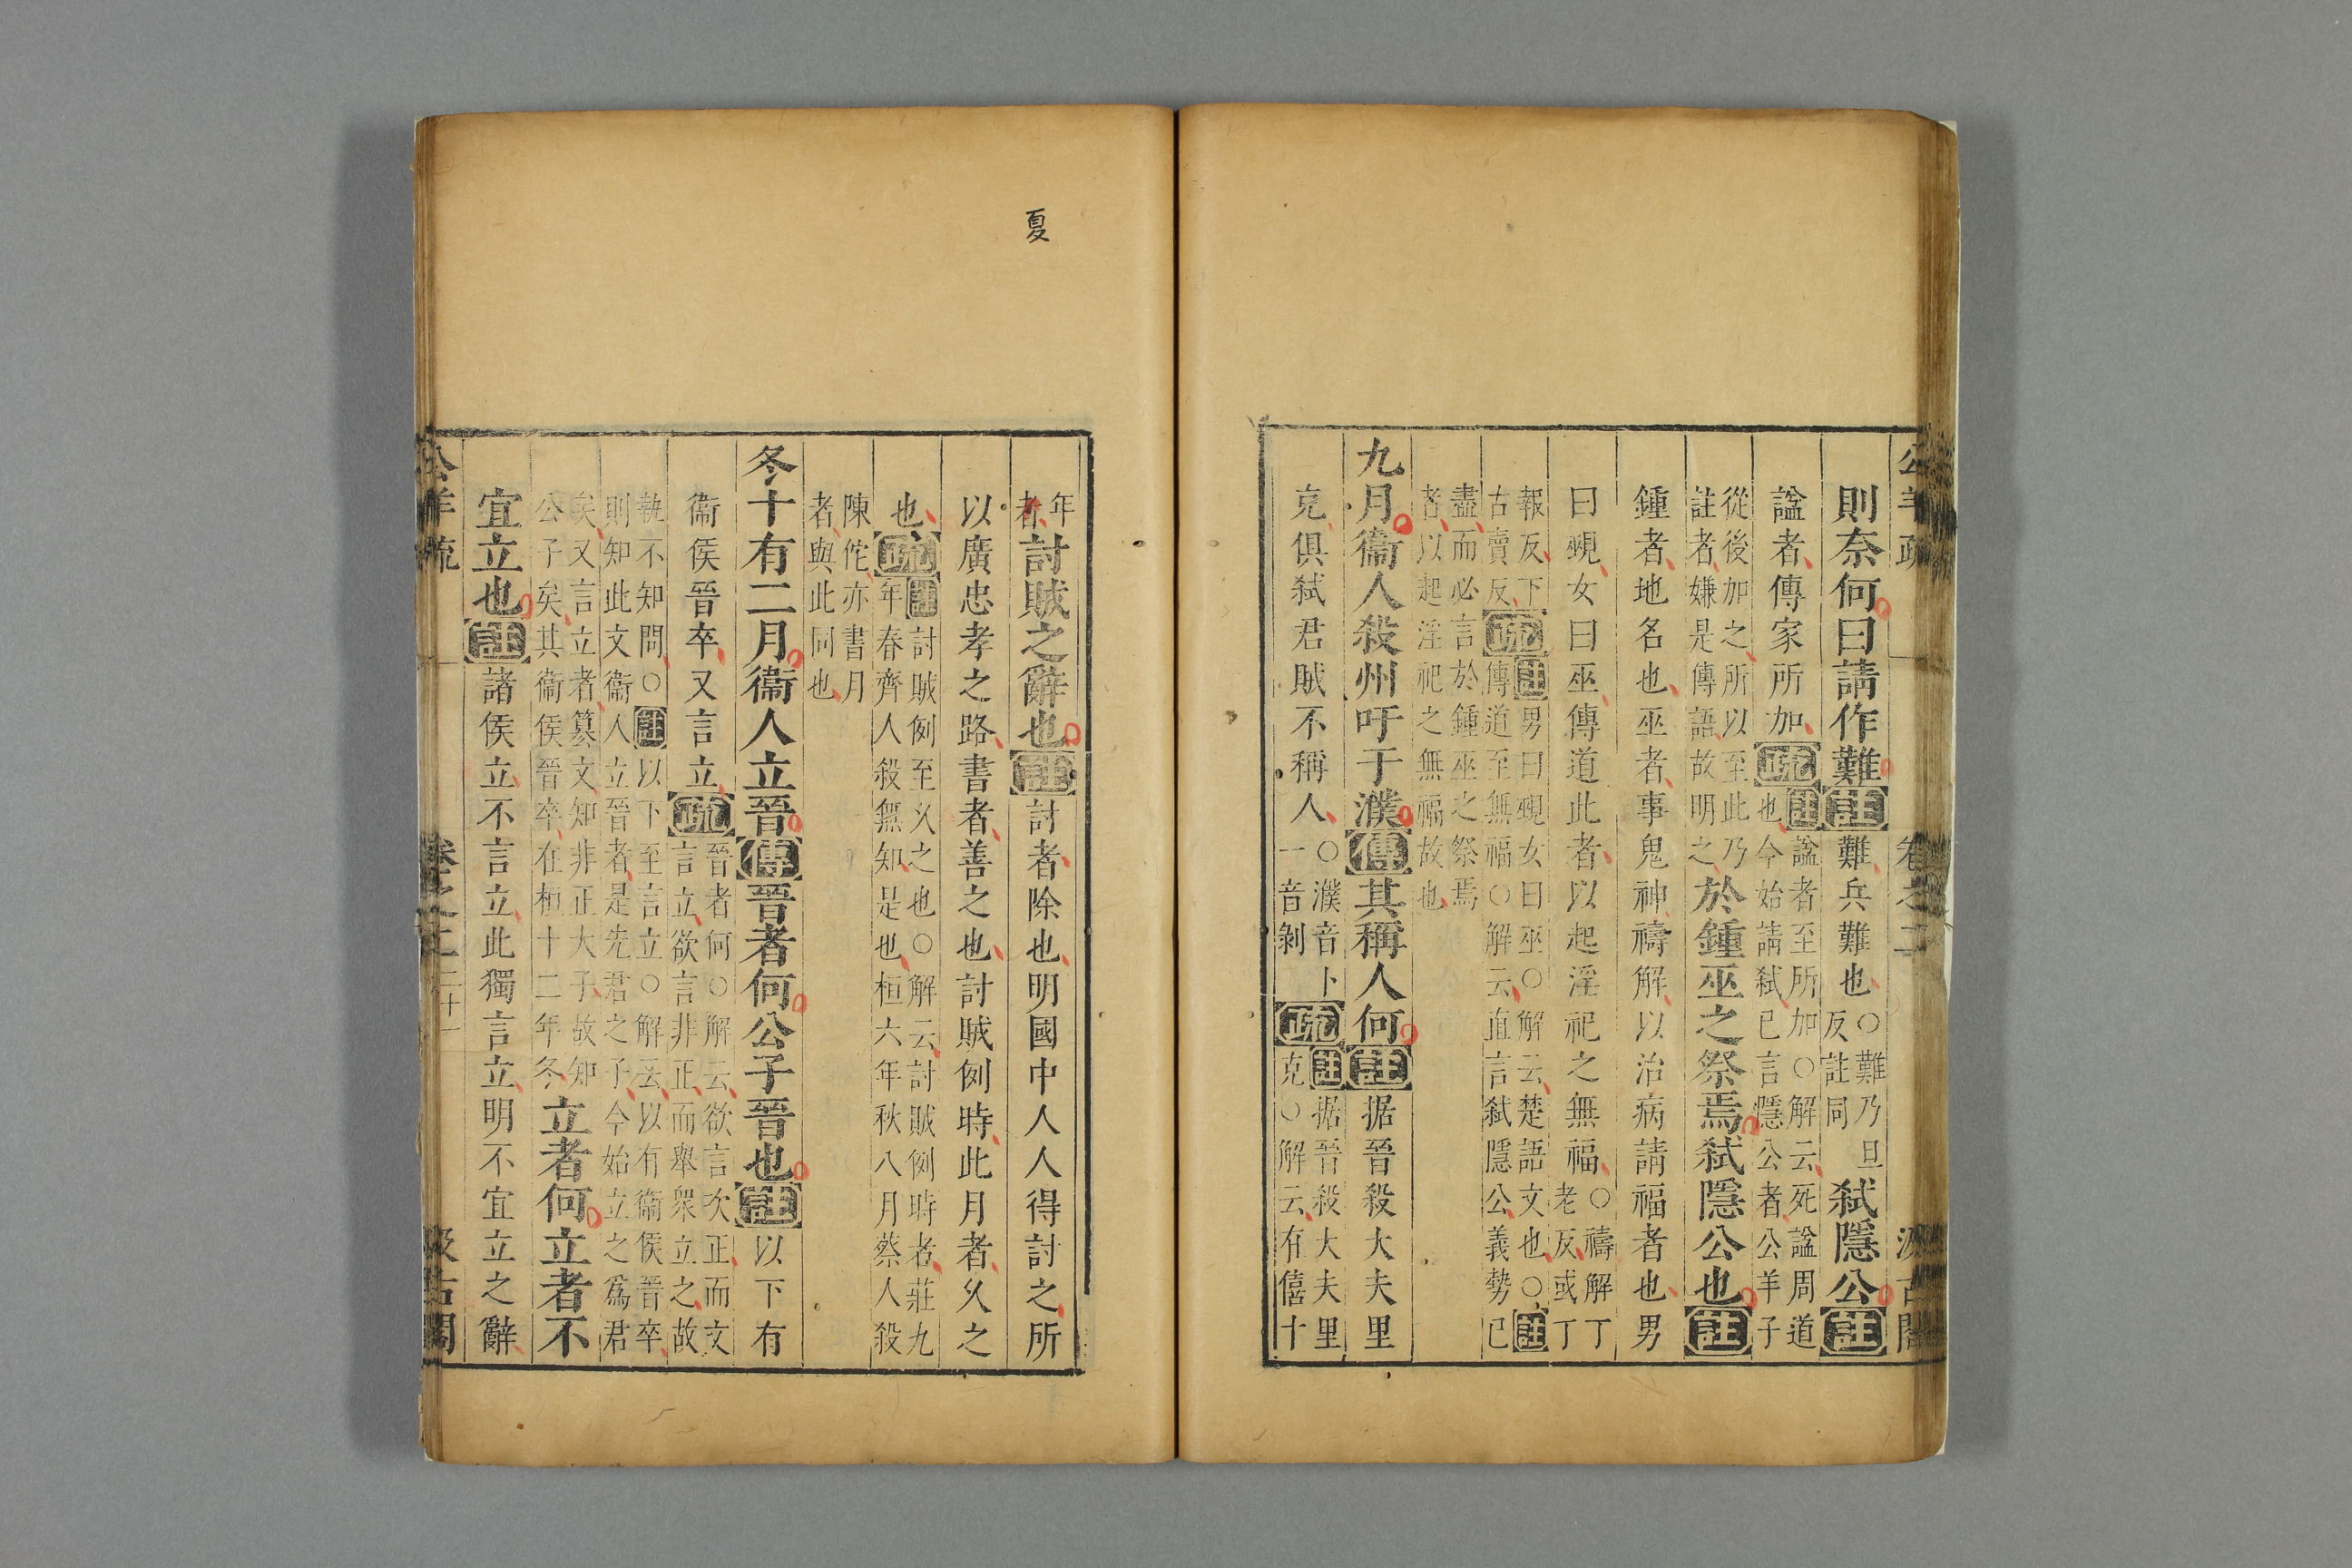 公羊疏 卷之二 汲古閣
則奈何曰請作難註難兵難也○難乃旦
反註同弒隱公註
諡者傳家所加疏註諡者至所加○解云死諡周道
也今始請弒已言隱公者公羊子
從後加之所以至此乃
註者嫌是傳語故明之於鍾巫之祭焉弒隱公也註
鍾者地名也巫者事鬼神禱解以治病請福者也男
曰覡女曰巫傳道此者以起淫祀之無福○禱解丁
老反或丁
報反下
古賣反疏註男曰覡女曰巫○解云楚語文也○註
傳道至無福○解云直言弒隱公義勢已
盡而必言於鍾巫之祭焉
者以起淫祀之無福故也
九月衞人殺州吁于濮傳其稱人何註据晉殺大夫里
克俱弒君賊不稱人○濮音卜
一音剝疏註据晉殺大夫里
克○解云有僖十
夏
年
者討賊之辭也註討者除也明國中人人得討之所
以廣忠孝之路書者善之也討賊例時此月者久之
也疏註討賊例至久之也○解云討賊例時者莊九
年春齊人殺無知是也桓六年秋八月蔡人殺
陳佗亦書月
者與此同也
冬十有二月衞人立晉傳晉者何公子晉也註以下有
衞侯晉卒又言立疏晉者何○解云欲言次正而文
言立欲言非正而舉衆立之故
執不知問○註以下至言立○解云以有衞侯晉卒
則知此文衞人立晉者是先君之子今始立之爲君
矣又言立者篡文知非正大子故知
公子矣其衞侯晉卒在桓十二年冬立者何立者不
宜立也註諸侯立不言立此獨言立明不宜立之辭
公羊疏 卷之二 二十一 汲古閣